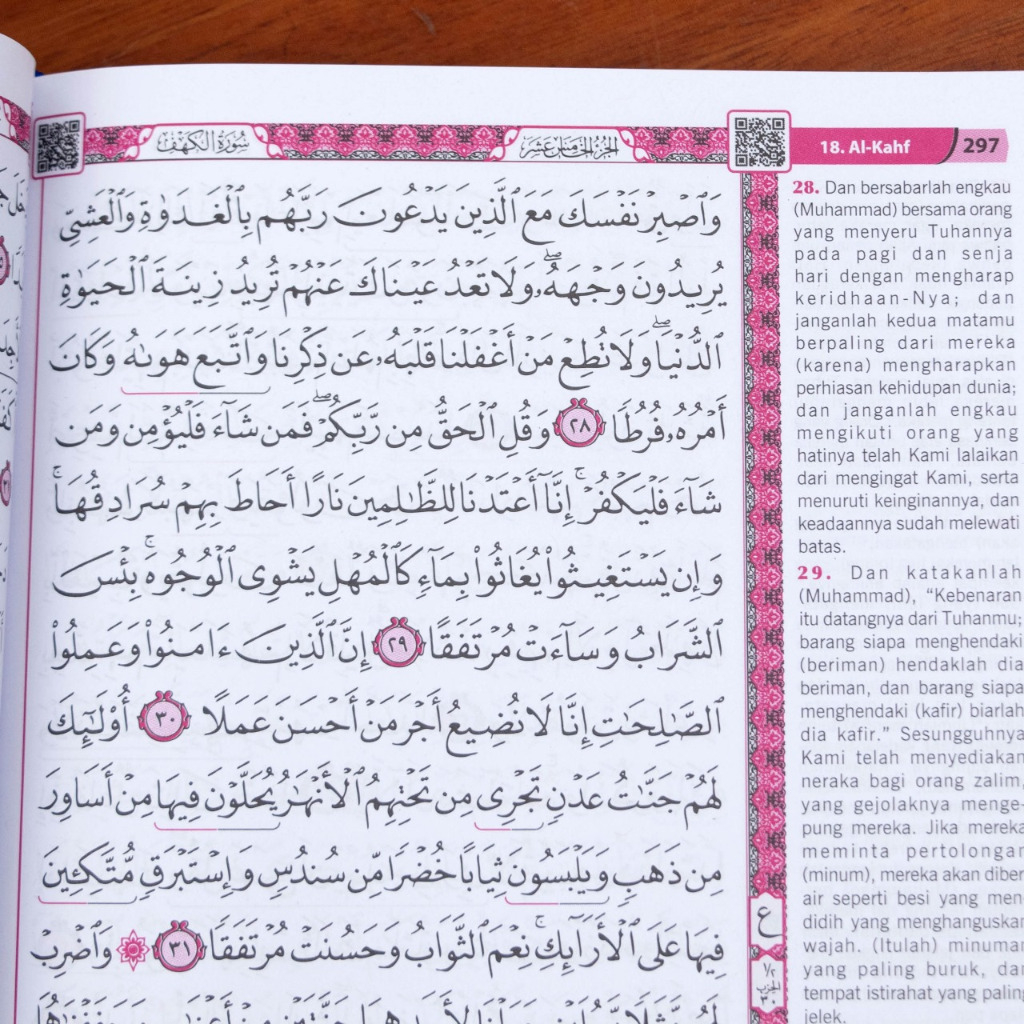 سُورَةُ الْكَهْفِ
الجُزْءُ الخَامِسَ عَشَرَ
18. Al-Kahf
297
وَٱصْبِرْ نَفْسَكَ مَعَ ٱلَّذِينَ يَدْعُونَ رَبَّهُم بِٱلْغَدَوٰةِ وَٱلْعَشِىِّ
يُرِيدُونَ وَجْهَهُۥۖ وَلَا تَعْدُ عَيْنَاكَ عَنْهُمْ تُرِيدُ زِينَةَ ٱلْحَيَوٰةِ
ٱلدُّنْيَاۖ وَلَا تُطِعْ مَنْ أَغْفَلْنَا قَلْبَهُۥ عَن ذِكْرِنَا وَٱتَّبَعَ هَوَىٰهُ وَكَانَ
أَمْرُهُۥ فُرُطًا ٢٨ وَقُلِ ٱلْحَقُّ مِن رَّبِّكُمْۖ فَمَن شَآءَ فَلْيُؤْمِن وَمَن
شَآءَ فَلْيَكْفُرْۚ إِنَّآ أَعْتَدْنَا لِلظَّـٰلِمِينَ نَارًا أَحَاطَ بِهِمْ سُرَادِقُهَاۚ
وَإِن يَسْتَغِيثُوا۟ يُغَاثُوا۟ بِمَآءٍ كَٱلْمُهْلِ يَشْوِى ٱلْوُجُوهَۚ بِئْسَ
ٱلشَّرَابُ وَسَآءَتْ مُرْتَفَقًا ٢٩ إِنَّ ٱلَّذِينَ ءَامَنُوا۟ وَعَمِلُوا۟
ٱلصَّـٰلِحَـٰتِ إِنَّا لَا نُضِيعُ أَجْرَ مَنْ أَحْسَنَ عَمَلًا ٣٠ أُو۟لَـٰٓئِكَ
لَهُمْ جَنَّـٰتُ عَدْنٍ تَجْرِى مِن تَحْتِهِمُ ٱلْأَنْهَـٰرُ يُحَلَّوْنَ فِيهَا مِنْ أَسَاوِرَ
مِن ذَهَبٍ وَيَلْبَسُونَ ثِيَابًا خُضْرًا مِّن سُندُسٍ وَإِسْتَبْرَقٍ مُّتَّكِـِٔينَ
فِيهَا عَلَى ٱلْأَرَآئِكِۚ نِعْمَ ٱلثَّوَابُ وَحَسُنَتْ مُرْتَفَقًا ٣١ وَٱضْرِبْ
ع
28. Dan bersabarlah engkau
(Muhammad) bersama orang
yang menyeru Tuhannya
pada pagi dan senja
hari dengan mengharap
keridhaan-Nya; dan
janganlah kedua matamu
berpaling dari mereka
(karena) mengharapkan
perhiasan kehidupan dunia;
dan janganlah engkau
mengikuti orang yang
hatinya telah Kami lalaikan
dari mengingat Kami, serta
menuruti keinginannya, dan
keadaannya sudah melewati
batas.
29. Dan katakanlah
(Muhammad), “Kebenaran
itu datangnya dari Tuhanmu;
barang siapa menghendaki
(beriman) hendaklah dia
beriman, dan barang siapa
menghendaki (kafir) biarlah
dia kafir.” Sesungguhnya
Kami telah menyediakan
neraka bagi orang zalim,
yang gejolaknya menge-
pung mereka. Jika mereka
meminta pertolongan
(minum), mereka akan diber
air seperti besi yang men
didih yang menghanguskan
wajah. (Itulah) minuman
yang paling buruk, dan
tempat istirahat yang paling
jelek.